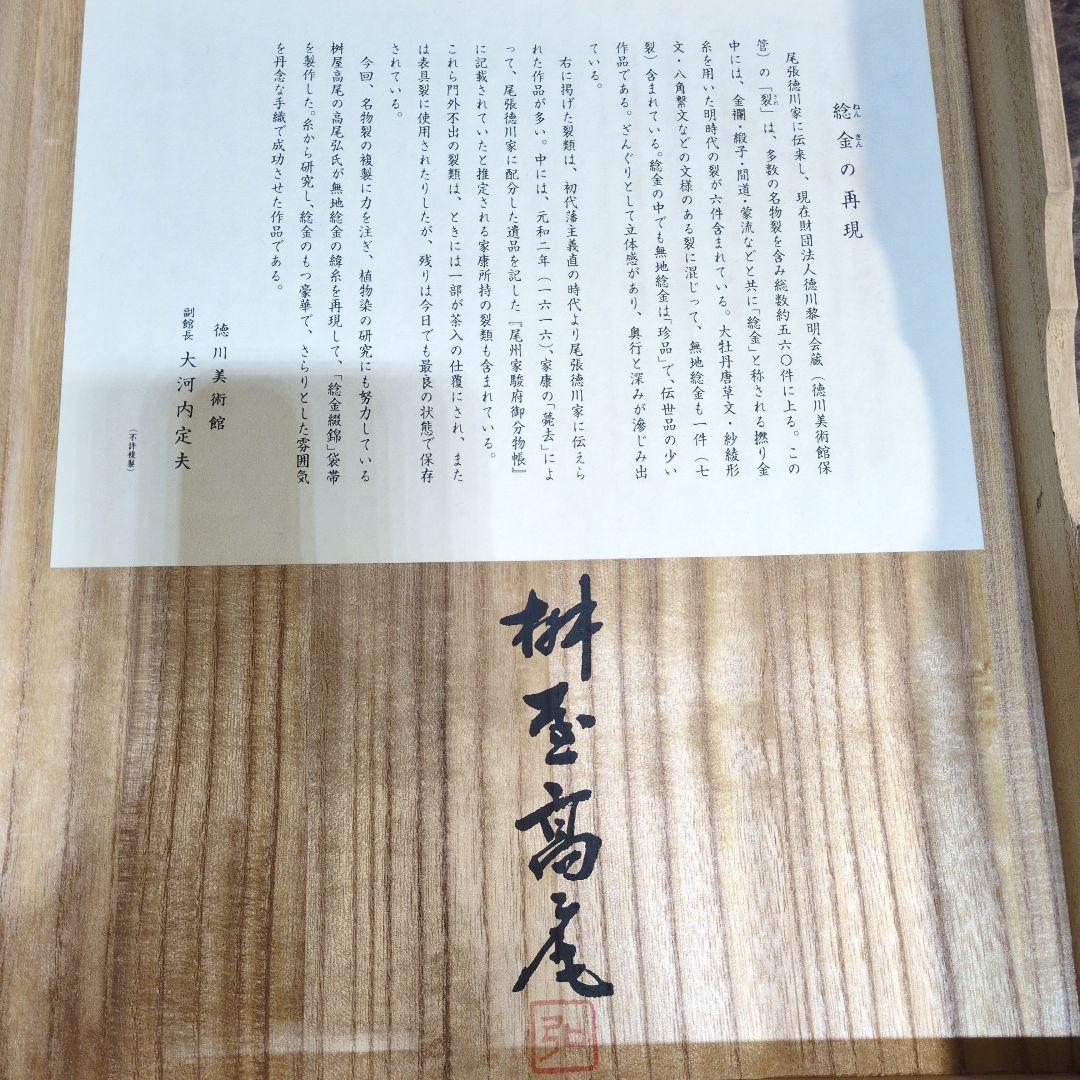 稔金の再現
ねんきん
尾張徳川家に伝来し、現在財団法人徳川黎明会蔵（徳川美術館保
管）の「裂」は、多数の名物裂を含み総数約五六〇件に上る。この
きれ
中には、金襴・緞子・間道・蒙流などと共に「稔金」と称される撚り金
糸を用いた明時代の裂が六件含まれている。大牡丹唐草文・紗綾形
文・八角繋文などの文様のある裂に混じって、無地稔金も一件（七
裂）含まれている。稔金の中でも無地稔金は「珍品」で、伝世品の少い
作品である。ざんぐりとして立体感があり、奥行と深みが滲じみ出
ている。
右に掲げた裂類は、初代藩主義直の時代より尾張徳川家に伝えら
れた作品が多い。中には、元和二年（一六一六）、家康の「薨去」によ
って、尾張徳川家に配分した遺品を記した『尾州家駿府御分物帳』
に記載されていたと推定される家康所持の裂類も含まれている。
これら門外不出の裂類は、ときには一部が茶入の仕覆にされ、また
は表具裂に使用されたりしたが、残りは今日でも最良の状態で保存
されている。
今回、名物裂の複製に力を注ぎ、植物染の研究にも努力している
桝屋高尾の高尾弘氏が無地稔金の緯糸を再現して、「稔金綴錦」袋帯
を製作した。糸から研究し、稔金のもつ豪華で、さらりとした雰囲気
を丹念な手織で成功させた作品である。
徳川美術館
副館長 大河内定夫
（不許複製）
桝屋高尾
弘